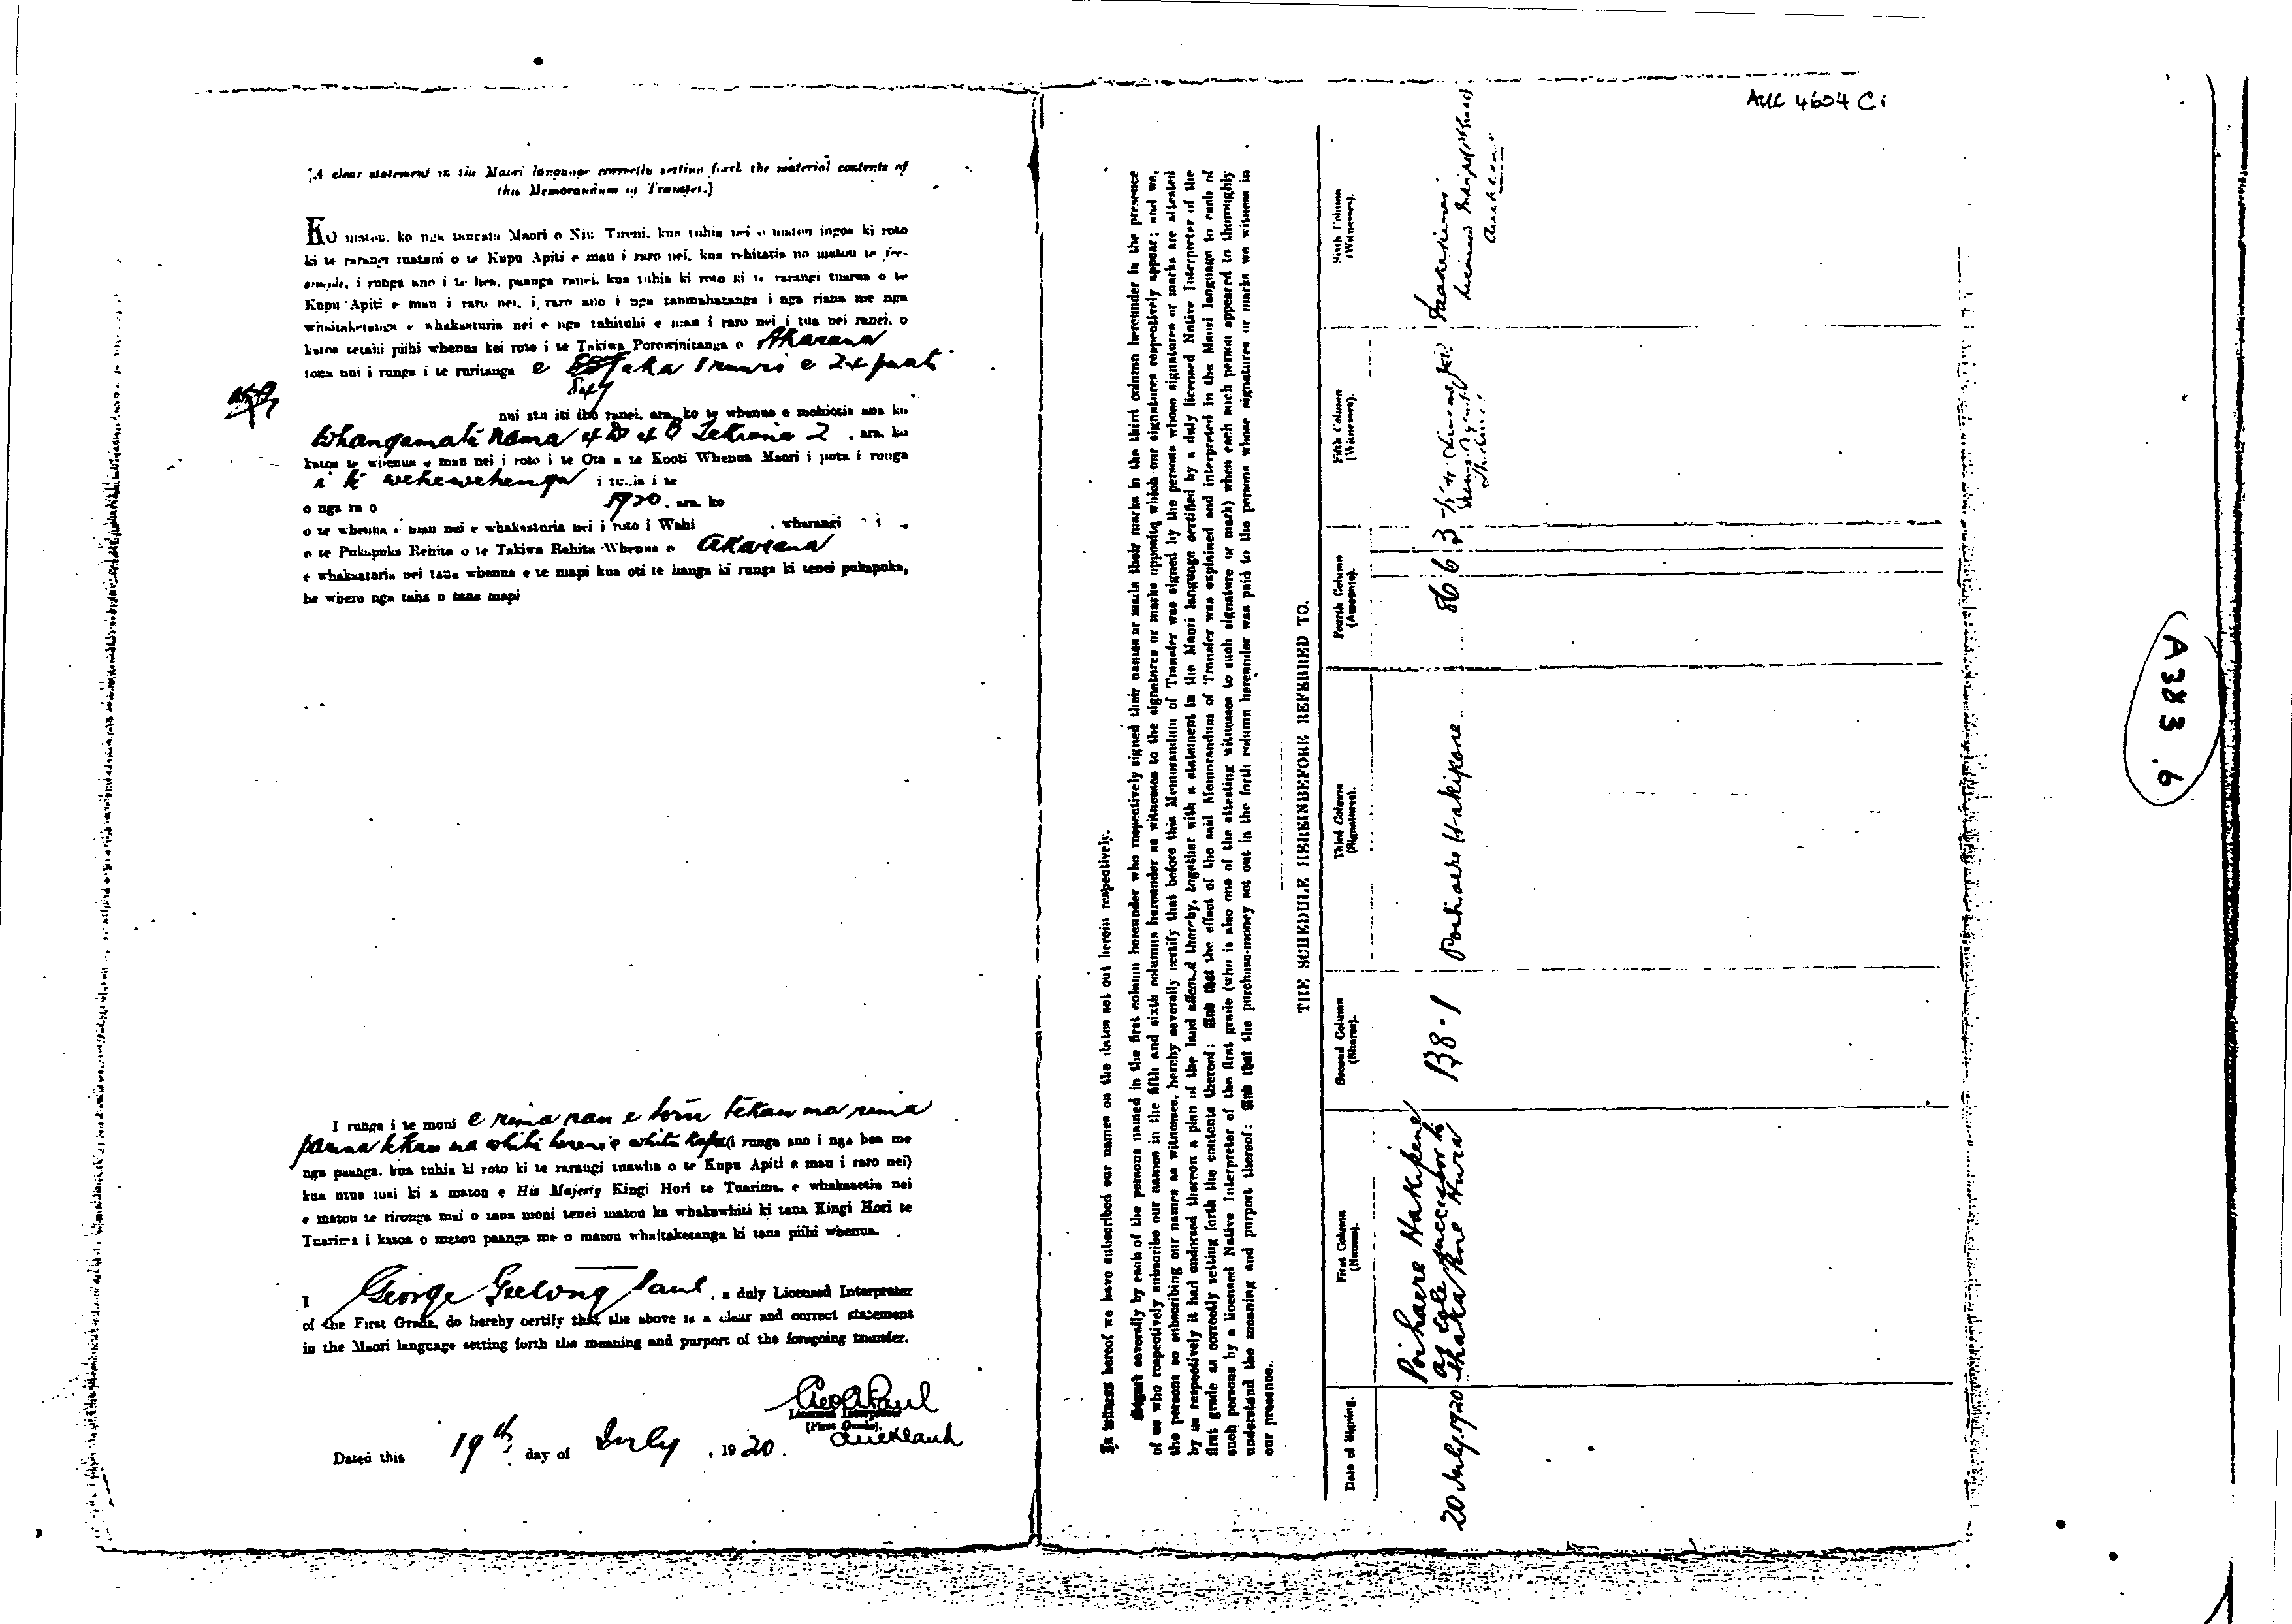 AUC 4604 Ci
(A clear statement in the Maori language correctly setting forth the material contents of
this Memorandum of Transfer.)
KO matou, ko nga tangata Maori o Niu Tireni, kua tuhia nei o matou ingoa ki roto
ki te rarangi tuatahi o te Kupu Apiti e mau i raro nei, kua rehitatia no matou te fee-
simple, i runga ano i te hea, paanga ranei, kua tuhia ki roto ki te rarangi tuarua o te
Kupu Apiti e mau i raro nei, i raro ano i nga taumahatanga i nga riana me nga
whaitaketanga e whakaaturia nei e nga tuhituhi e mau i raro nei i tua nei ranei, o
katoa tetahi piihi whenua kei roto i te Takiwa Porowinitanga o Akarana
tona nui i runga i te ruritanga e eka 1 ruuri e 24 paati
847
nui atu iti iho ranei, ara, ko te whenua e mohiotia ana ko
Whangamata Nama 4 D 4 B Tekiona 2 , ara, ko
katoa te whenua e mau nei i roto i te Ota a te Kooti Whenua Maori i puta i runga
i te wehewehenga i tuhia i te
o nga ra o 1920, ara, ko
o te whenua e mau nei e whakaaturia nei i roto i Wahi , wharangi i
o te Pukapuka Rehita o te Takiwa Rehita Whenua o Akarana
e whakaaturia nei taua whenua e te mapi kua oti te hanga ki runga ki tenei pukapuka,
he whero nga taha o taua mapi
I runga i te moni e rima rau e toru tekau ma rima
pauna tekau ma whitu hereni e whitu kapa (i runga ano i nga hea me
nga paanga, kua tuhia ki roto ki te rarangi tuawha o te Kupu Apiti e mau i raro nei)
kua utua mai ki a matou e His Majesty Kingi Hori te Tuarima, e whakaaetia nei
e matou te rironga mai o taua moni tenei matou ka whakawhiti ki taua Kingi Hori te
Tuarima i katoa o matou paanga me o matou whaitaketanga ki taua piihi whenua.
I George Geelong Paul, a duly Licensed Interpreter
of the First Grade, do hereby certify that the above is a clear and correct statement
in the Maori language setting forth the meaning and purport of the foregoing transfer.
Geo G Paul
Licensed Interpreter
(First Grade).
Auckland
Dated this 19th day of July , 1920.
In witness hereof we have subscribed our names on the dates set out herein respectively.
Signed severally by each of the persons named in the first column hereunder who respectively signed their names or made their marks in the third column hereunder in the presence
of us who respectively subscribe our names in the fifth and sixth columns hereunder as witnesses to the signatures or marks opposite which our signatures respectively appear; and we,
the persons so subscribing our names as witnesses, hereby severally certify that before this Memorandum of Transfer was signed by the persons whose signatures or marks are attested
by us respectively it had endorsed thereon a plan of the land affected thereby, together with a statement in the Maori language certified by a duly licensed Native Interpreter of the
first grade as correctly setting forth the contents thereof: And that the effect of the said Memorandum of Transfer was explained and interpreted in the Maori language to each of
such persons by a licensed Native Interpreter of the first grade (who is also one of the attesting witnesses to such signature or mark) when each such person appeared to thoroughly
understand the meaning and purport thereof: And that the purchase-money set out in the forth column hereunder was paid to the persons whose signatures or marks we witness in
our presence.
THE SCHEDULE HEREINBEFORE REFERRED TO.
Date of Signing.
First Column
(Names).
Second Column
(Shares).
Third Column
(Signatures).
Fourth Column
(Amounts).
Fifth Column
(Witnesses).
Sixth Column
(Witnesses).
20 July 1920
Poihaere Hakipene
as sole successor to
138·1
Poihaere Hakipene
86 6 3
Auckland
A383.6